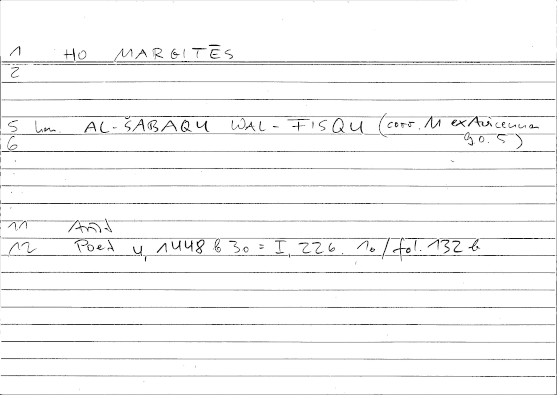 1 HO MARGITĒS
2
5 hm. AL-ŠABAQU WAL-FISQU (corr. M ex Avicenna
90.5)
6
11 Arist
12 Poet 4, 1448 b 30 = I, 226. 10 / fol. 132 b